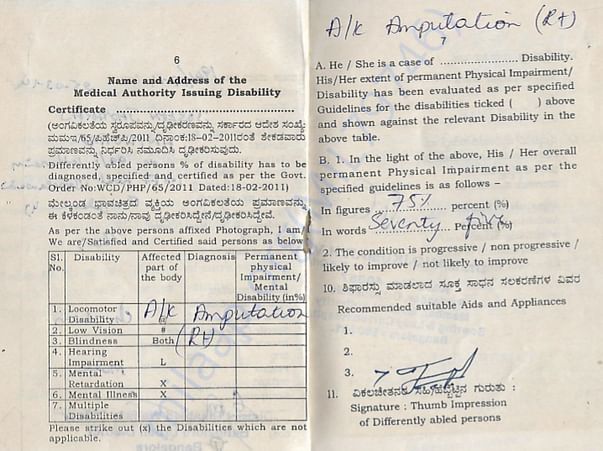 6
Name and Address of the
Medical Authority Issuing Disability
Certificate ................................................
(ಅಂಗವಿಕಲತೆಯ ಸ್ವರೂಪವನ್ನು/ದೃಢೀಕರಣವನ್ನು ಸರ್ಕಾರದ ಆದೇಶ ಸಂಖ್ಯೆ:
ಮಮಇ/65/ಪಿಹೆಚ್‌ಪಿ/2011 ದಿನಾಂಕ:18-02-2011ರಂತೆ ಶೇಕಡವಾರು
ಪ್ರಮಾಣವನ್ನು ನಿರ್ಧರಿಸಿ ನಮೂದಿಸಿ ದೃಢೀಕರಿಸುವುದು.
Differently abled persons % of disability has to be
diagnosed, specified and certified as per the Govt.
Order No:WCD/PHP/65/2011 Dated:18-02-2011)
ಮೇಲ್ಕಂಡ ಭಾವಚಿತ್ರದ ವ್ಯಕ್ತಿಯ ಅಂಗವಿಕಲತೆಯ ಪ್ರಮಾಣವನ್ನು
ಈ ಕೆಳಕಂಡಂತೆ ನಾನು/ನಾವು ದೃಢೀಕರಿಸಿದ್ದೇನೆ/ದೃಢೀಕರಿಸಿದ್ದೇವೆ.
As per the above persons affixed Photograph, I am/
We are/Satisfied and Certified said persons as below
Sl. No. Disability Affected part of the body Diagnosis Permanent physical Impairment/ Mental Disability (in%)
1. Locomotor Disability @ A/k Amputation
2. Low Vision # (Rt)
3. Blindness Both
4. Hearing Impairment L
5. Mental Retardation X
6. Mental Illness X
7. Multiple Disabilities
Please strike out (x) the Disabilities which are not
applicable.
A/k Amputation (Rt)
7
A. He / She is a case of ..................... Disability.
His/Her extent of permanent Physical Impairment/
Disability has been evaluated as per specified
Guidelines for the disabilities ticked ( ) above
and shown against the relevant Disability in the
above table.
B. 1. In the light of the above, His / Her overall
permanent Physical Impairment as per the
specified guidelines is as follows -
In figures ....75%...... percent (%)
In words Seventy five Percent (%)
2. The condition is progressive / non progressive /
likely to improve / not likely to improve
10. ಶಿಫಾರಸ್ಸು ಮಾಡಲಾದ ಸೂಕ್ತ ಸಾಧನ ಸಲಕರಣೆಗಳ ವಿವರ
Recommended suitable Aids and Appliances
1.
2.
3.
11. ವಿಕಲಚೇತನರ ಸಹಿ/ಹೆಬ್ಬೆಟ್ಟಿನ ಗುರುತು :
Signature : Thumb Impression
of Differently abled persons